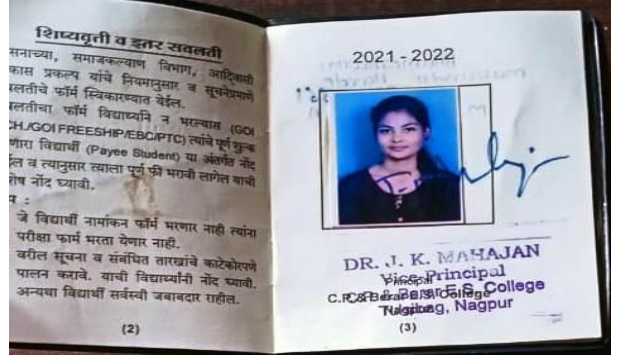 शिष्यवृत्ती व इतर सवलती
सनाच्या, समाजकल्याण विभाग, आदिवासी
कास प्रकल्प यांचे नियमानुसार व सूचनेप्रमाणे
लतीचे फॉर्म स्विकारण्यात येईल.
लतीचा फॉर्म विद्यार्थ्याने न भरल्यास (GOI
CH./GOI FREESHIP/EBC/PTC) त्यांचे पूर्ण शुल्क
णारा विद्यार्थी (Payee Student) या अंतर्गत नोंद
ईल व त्यानुसार त्याला पूर्ण फी भरावी लागेल याची
शेष नोंद घ्यावी.
प :
जे विद्यार्थी नामांकन फॉर्म भरणार नाही त्यांना
परीक्षा फार्म भरता येणार नाही.
वरील सूचना व संबंधित तारखांचे काटेकोरपणे
पालन करावे. याची विद्यार्थ्यांनी नोंद घ्यावी.
अन्यथा विद्यार्थी सर्वस्वी जबाबदार राहील.
(2)
2021 - 2022
DR. J. K. MAHAJAN
Vice-Principal
Principal
C.P. & Berar E.S. College
C.P. & Berar E.S. College
Tulsibag, Nagpur
(3)